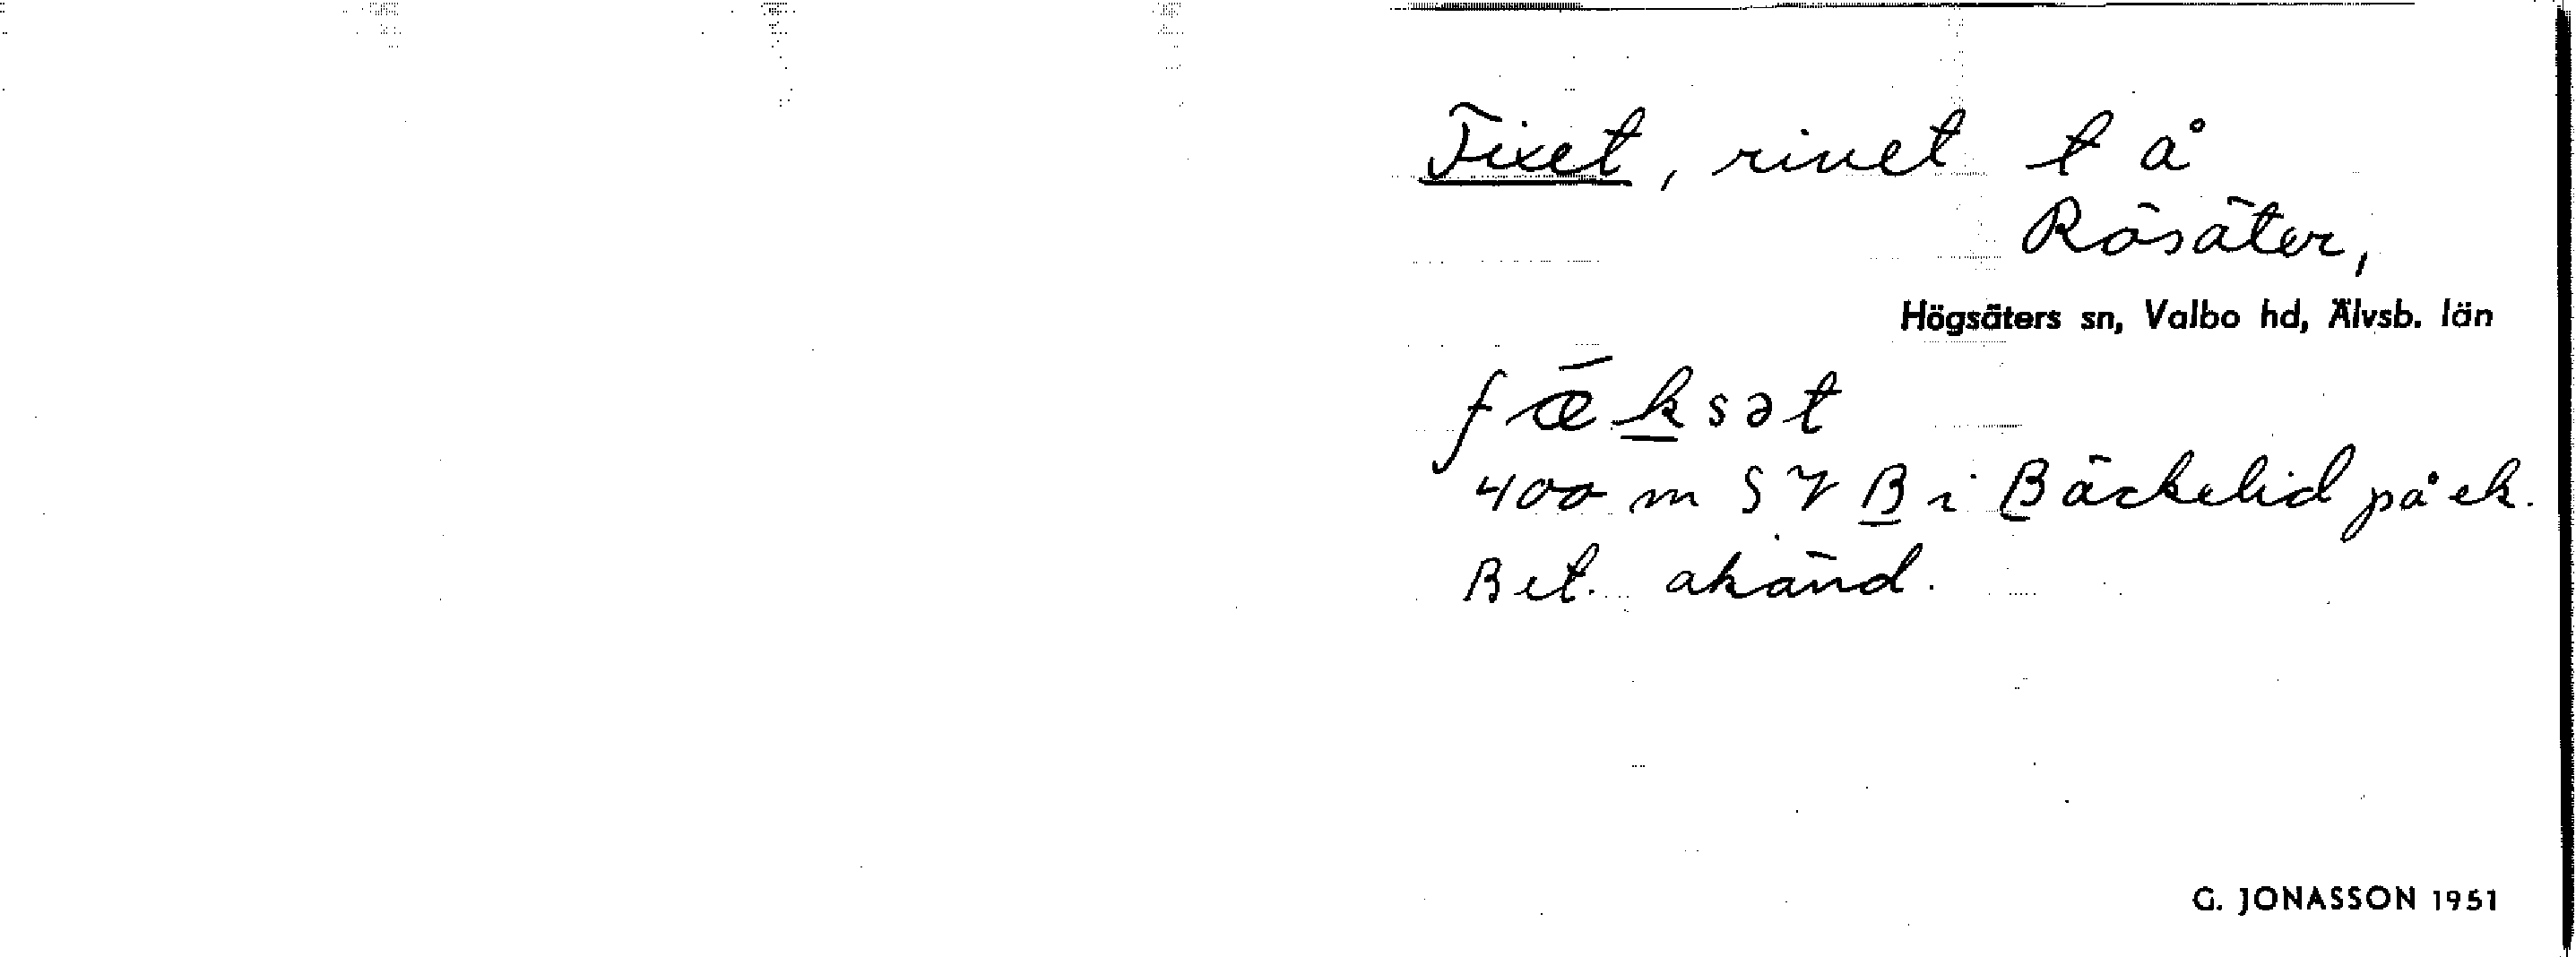 Fixet, rivet t å
Rösäter,
Högsäters sn, Valbo hd, Älvsb. län
fæ̂ksət
400 m SV B i Bäckelid på ek.
Bet. okänd.
G. JONASSON 1951